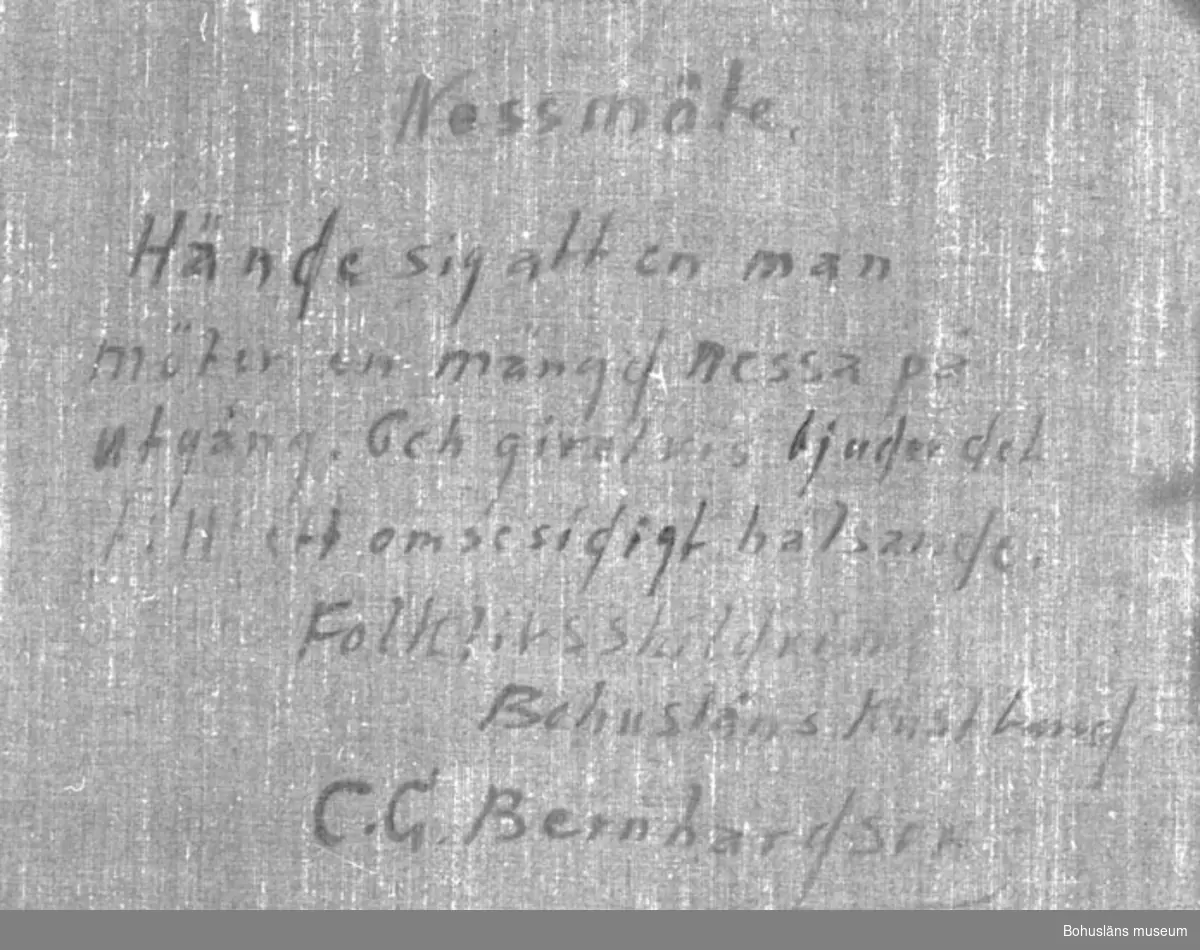 Nessmöte.
Hände sig att en man
möter en mängd nessa på
utgång. Och givetvis bjuder det
till ett omsesidigt hälsande.
Folklivsskildring
Bohusläns Kust Land
C.G. Bernhardson
Bohusläns museum